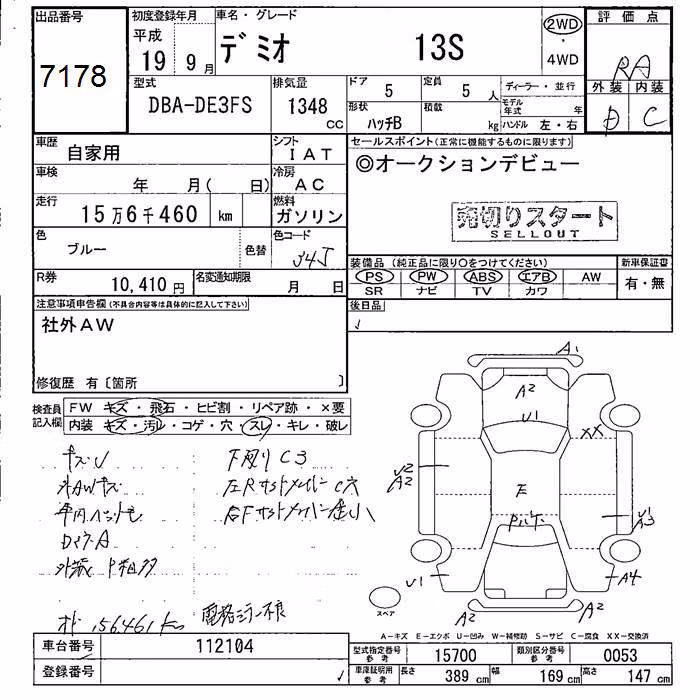 出品番号
7178
初度登録年月
平成
19 9月
車名・グレード
デミオ 13S
2WD
・
4WD
評価点
RA
外装 内装
D C
型式
DBA-DE3FS
排気量
1348
CC
ドア
5
定員
5 人
形状
ハッチB
積載
kg
ディーラー・並行
モデル年式 年
ハンドル 左・右
車歴
自家用
シフト
IAT
車検
年 月( 日)
冷房
AC
走行
15万6千460 km
燃料
ガソリン
色
ブルー
色替
色コード
34J
R券
10,410円
名変通知期限
月 日
セールスポイント(正常に機能するものに限ります)
◎オークションデビュー
売切りスタート
SELLOUT
装備品(純正品に限り○をつけてください)
新車保証書
PS PW ABS エアB AW
SR ナビ TV カワ
有・無
後日品
注意事項申告欄(不具合内容等は具体的に記入して下さい)
社外AW
修復歴 有〔箇所 〕
検査員記入欄
FW キズ・飛石・ヒビ割・リペア跡・×要
内装 キズ・汚レ・コゲ・穴・スレ・キレ・破レ
キズU
外AWキズ
下廻りC3
オド156,461km
電格ミラー不良
A1
A2
U1
XX
U2
A2
E
U1
A3
U1
A4
A2
A2
スペア
A-キズ E-エクボ U-凹み W-補修跡 S-サビ C-腐食 XX-交換済
車台番号
112104
登録番号
型式指定番号
参考
15700
類別区分番号
参考
0053
車庫証明用
参考
長さ
389 cm
幅
169 cm
高さ
147 cm